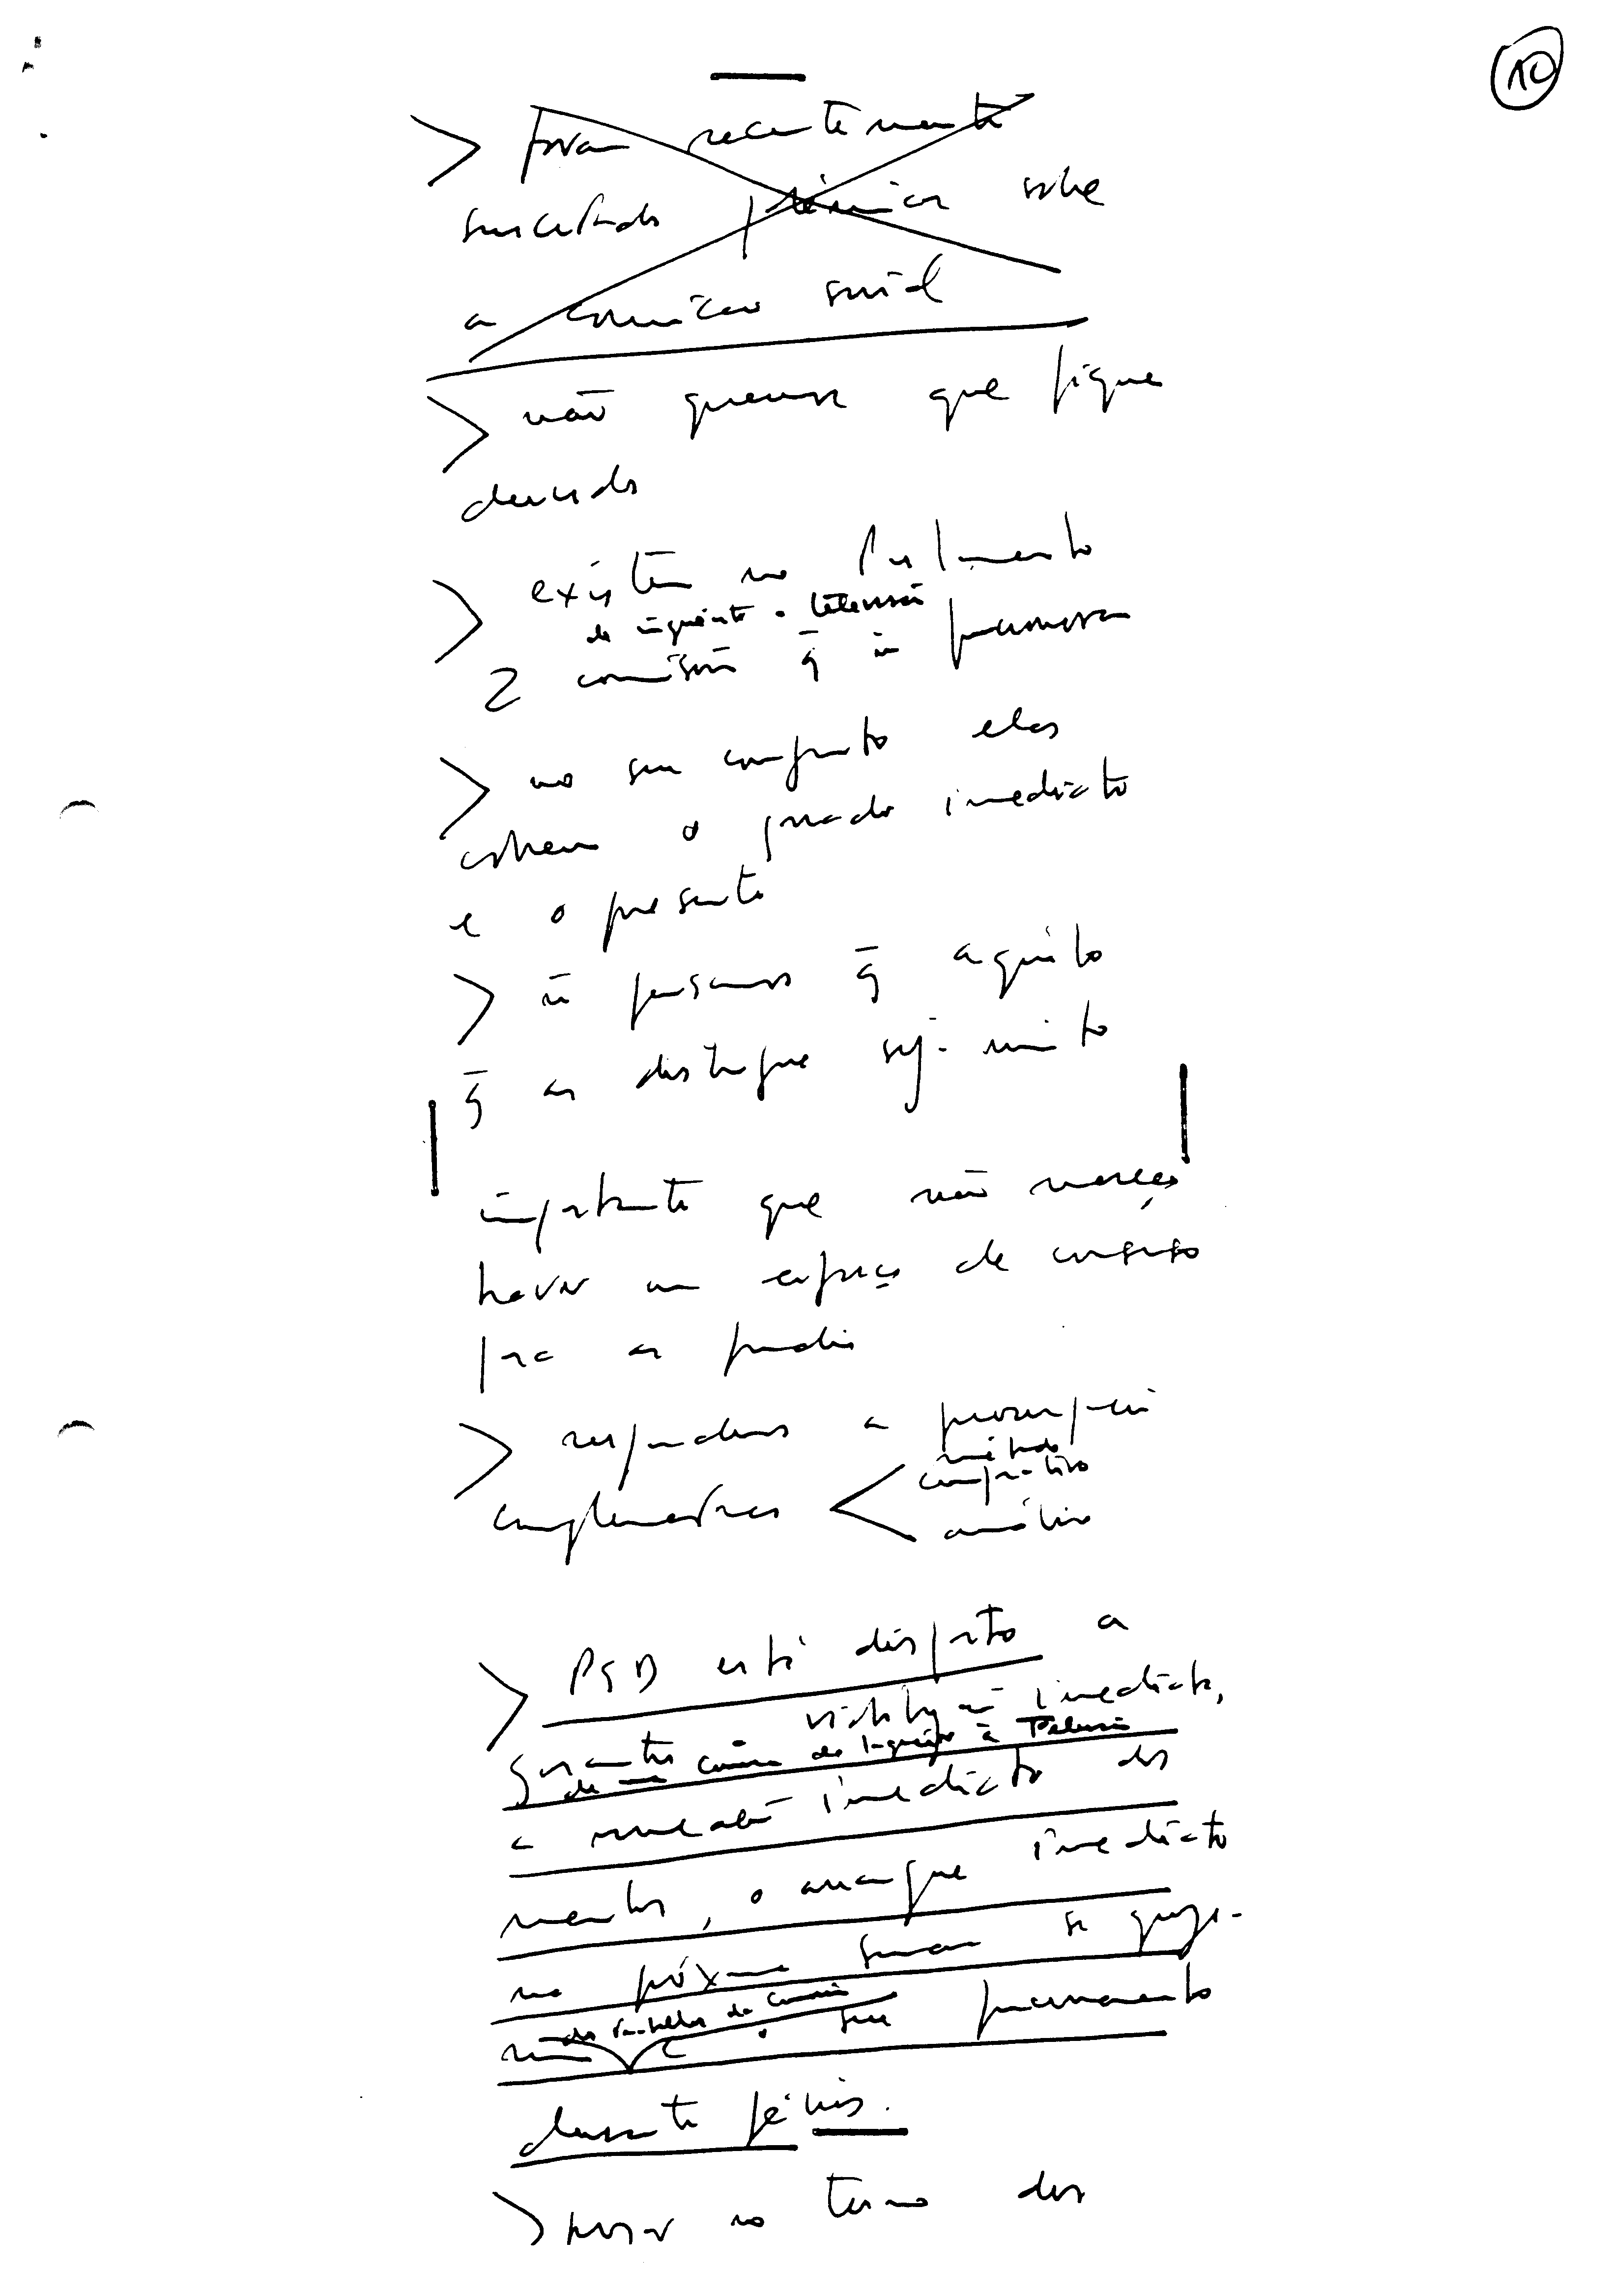 10
> foram recentemente
suscitados polémicas sobre
a comunicação social
> não queremos que fique
> existem no Parlamento
de inquérito à televisão
2 comissões q̄ ñ
> no seu conjunto elas
cobrem o passado imediato
e o presente
> ñ pensamos q̄ aquilo
q̄ as distingue seja muito
importante que não mereça
haver um espaço de consenso
para as
> respondem a preocupações
complementares <
método
comparativo
análise
> PSD está disposto a
garantir viabilização imediata,
de uma Comissão de Inquérito à Televisão
a indicação imediata dos
membros, o arranque imediato
na próxima semana se
dos trabalhos da Comissão
e o seu funcionamento
durante férias.
> no termo dos